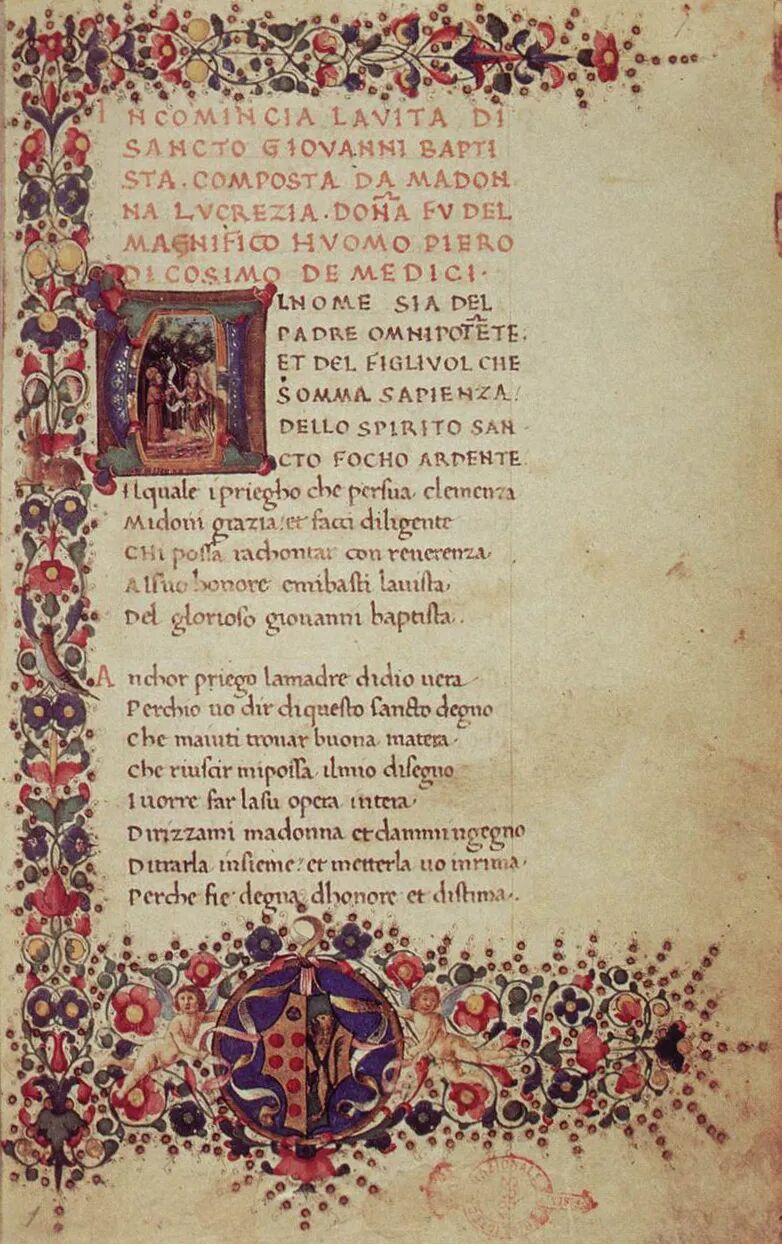 INCOMINCIA LAVITA DI
SANCTO GIOVANNI BAPTI
STA. COMPOSTA DA MADON
NA LVCREZIA. DOÑA FV DEL
MAGNIFICO HVOMO PIERO
DI COSIMO DE MEDICI.
ALNOME SIA DEL
PADRE OMNIPOTE͂TE.
ET DEL FIGLIVOL CHE
SOMMA SAPIENZA.
DELLO SPIRITO SAN
CTO FOCHO ARDENTE.
Ilquale i priegho che persua clemenza
Midoni grazia. et facci diligente
CHi possa rachontar con reverenza.
Alsuo honore emibasti lavista
Del glorioso giovanni baptista.
Anchor priego lamadre didio vera
Perchio vo dir diquesto sancto degno
Che maiuti trovar buona matera.
Che riuscir mipossa ilmio disegno
I vorre far lasu opera intera.
Dirizzami madonna et dammi ingegno
Ditrarla insieme. et metterla vo inrima.
Perche fie degna dhonore et distima.
NAZIONALE